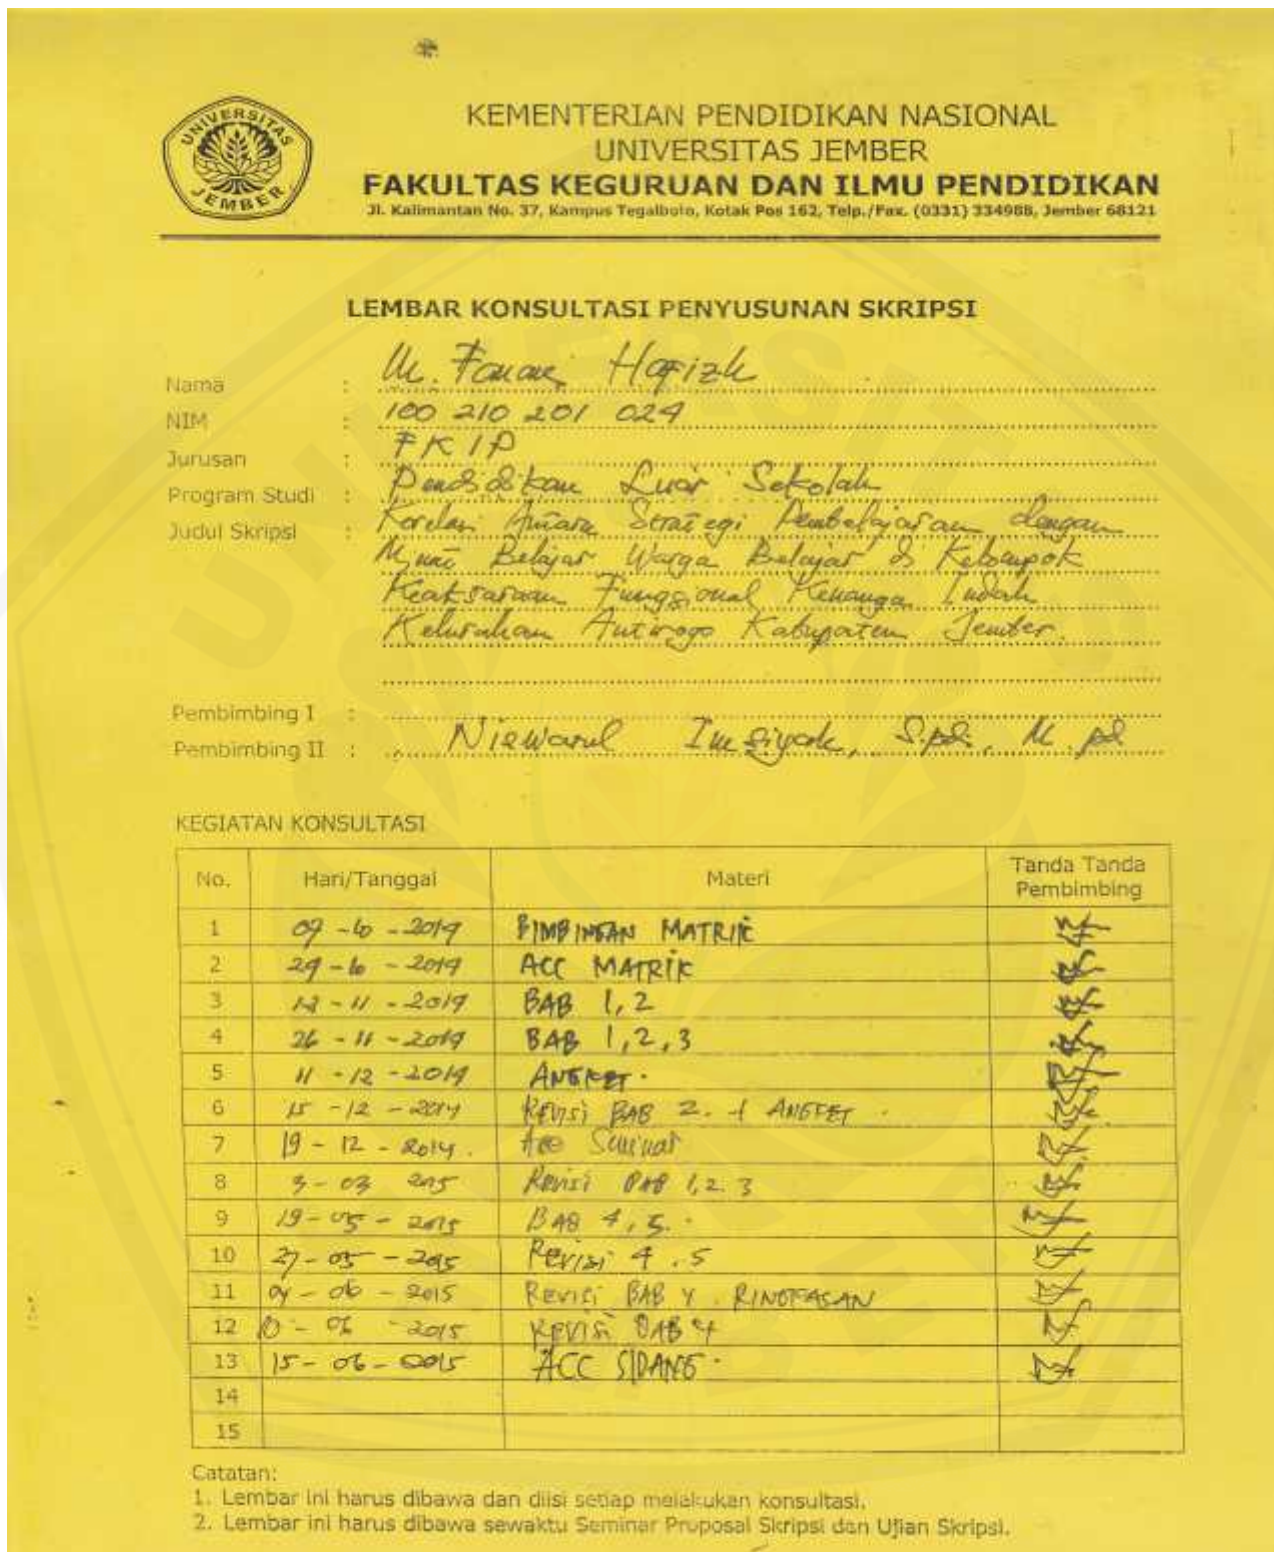 UNIVERSITAS
JEMBER
KEMENTERIAN PENDIDIKAN NASIONAL
UNIVERSITAS JEMBER
FAKULTAS KEGURUAN DAN ILMU PENDIDIKAN
Jl. Kalimantan No. 37, Kampus Tegalboto, Kotak Pos 162, Telp./Fax. (0331) 334988, Jember 68121
LEMBAR KONSULTASI PENYUSUNAN SKRIPSI
Nama : M. Hafizh
NIM : 100 210 201 024
Jurusan : FKIP
Program Studi : Pendidikan Luar Sekolah
Judul Skripsi : Korelasi Antara Strategi Pembelajaran dengan
Minat Belajar Warga Belajar di Kelompok
Keaksaraan Fungsional Kenanga Indah
Kelurahan Antirogo Kabupaten Jember.
Pembimbing I :
Pembimbing II : Niswatul Imsiyah, S.Pd. M.Pd
KEGIATAN KONSULTASI
No. Hari/Tanggal Materi Tanda Tanda Pembimbing
1 BIMBINGAN MATRIK
2 ACC MATRIK
3 BAB 1, 2
4 26 - 11 - 2014 BAB 1, 2, 3
5 11 - 12 - 2014 ANGKET.
6 15 - 12 - 2014 Revisi BAB 2. + ANGKET
7 19 - 12 - 2014. Acc Seminar
8 3 - 03 2015 Revisi BAB 1, 2. 3
9 19 - 05 - 2015 BAB 4, 5.
10 27 - 05 - 2015 Revisi 4. 5
11 04 - 06 - 2015 Revisi BAB 4. RINGKASAN
12 10 - 06 - 2015 Revisi BAB 4
13 15 - 06 - 2015 ACC SIDANG.
14
15
Catatan:
1. Lembar ini harus dibawa dan diisi setiap melakukan konsultasi.
2. Lembar ini harus dibawa sewaktu Seminar Proposal Skripsi dan Ujian Skripsi.